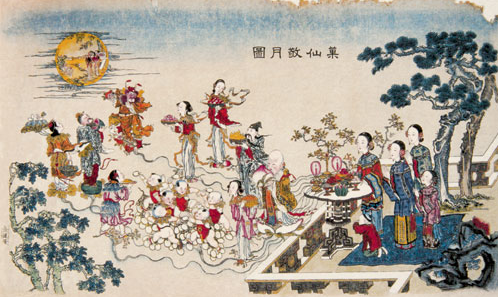 菓仙敬月圖